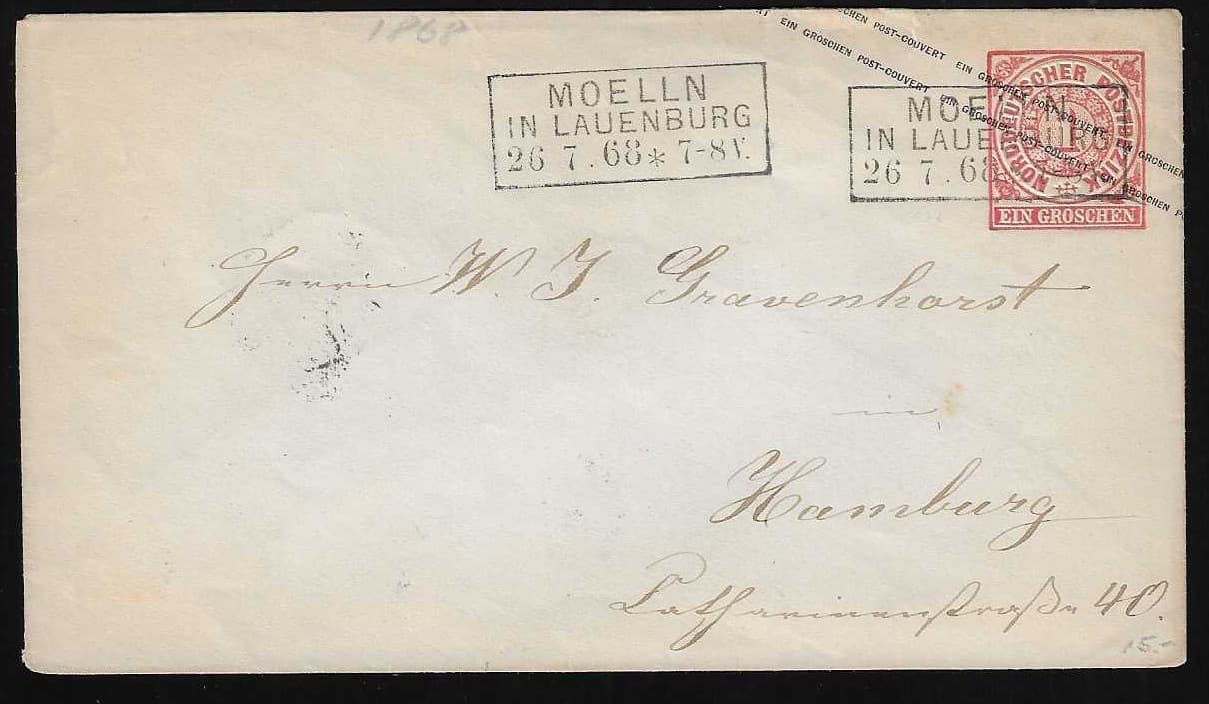 1868
MOELLN
IN LAUENBURG
26 7.68 * 7-8 V.
MOELLN
IN LAUENBURG
26 7.68
CHEN POST-COUVERT EIN GROSCHEN POST-COUVERT EIN GROSCHEN
EIN GROSCHEN POST-COUVERT EIN GROSCHEN POST-COUVERT EIN GROSCHEN P
NORDDEUTSCHER POSTBEZIRK
1
EIN GROSCHEN
Herrn W. J. Gravenhorst
in
Hamburg
Catharinenstraße 40.
15.-